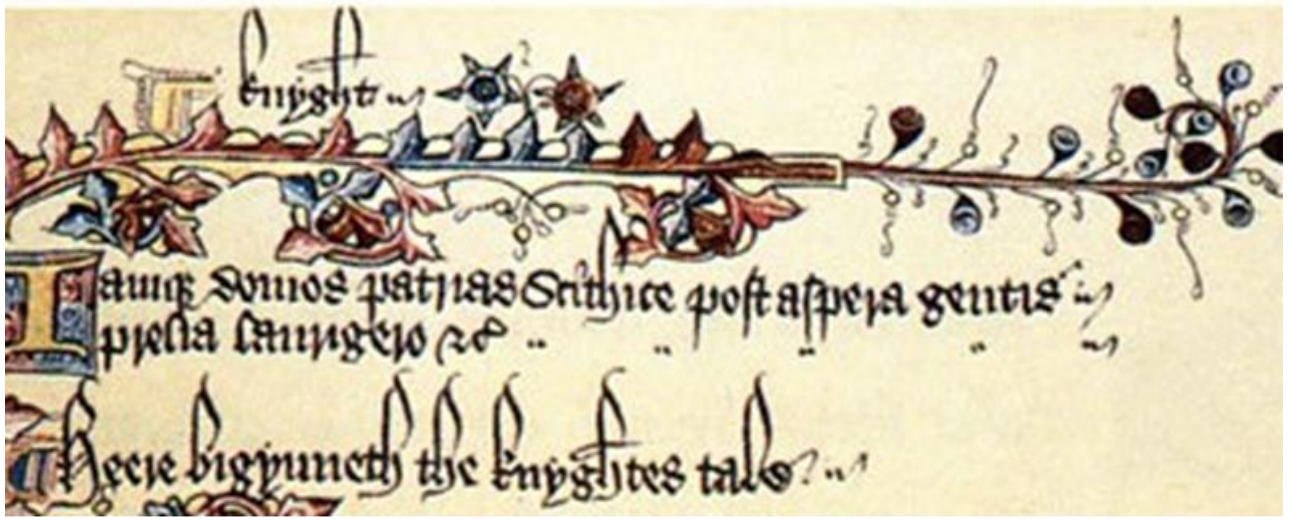 knyght
Iamque domos patrias Scithice post aspera gentis
prelia laurigero &c
Heere bigynneth the knyghtes tale